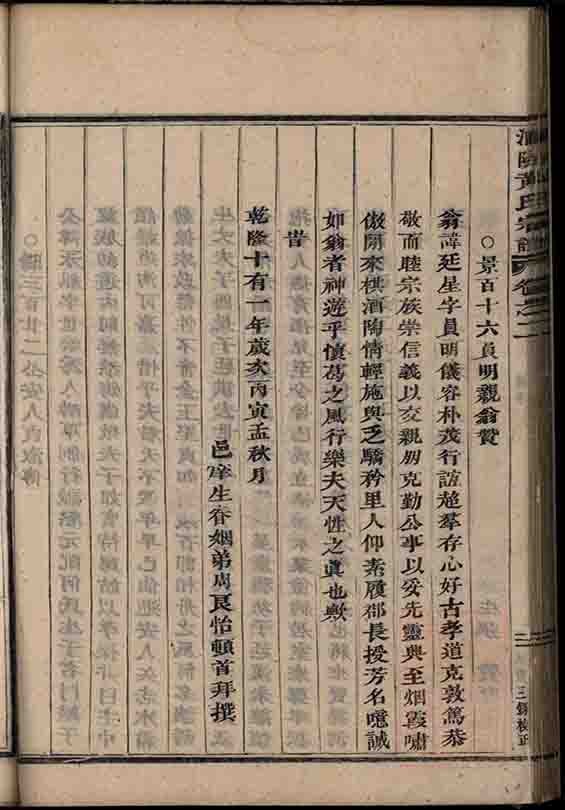 黃氏宗譜 卷之二
○景百十六員明親翁贊
翁諱廷星字員明儀容朴茂行誼超羣存心好古孝道克敦篤恭
敬而睦宗族崇信義以交親朋克勤公事以妥先靈興至烟霞嘯
傲閒來棋酒陶情輕施與乏驕矜里人仰素履郡長授芳名噫誠
如翁者神遊乎懷葛之風行樂夫天性之眞也歟
時
乾隆十有一年歲次丙寅孟秋月
邑庠生眷姻弟周良怡頓首拜撰
三錫校正